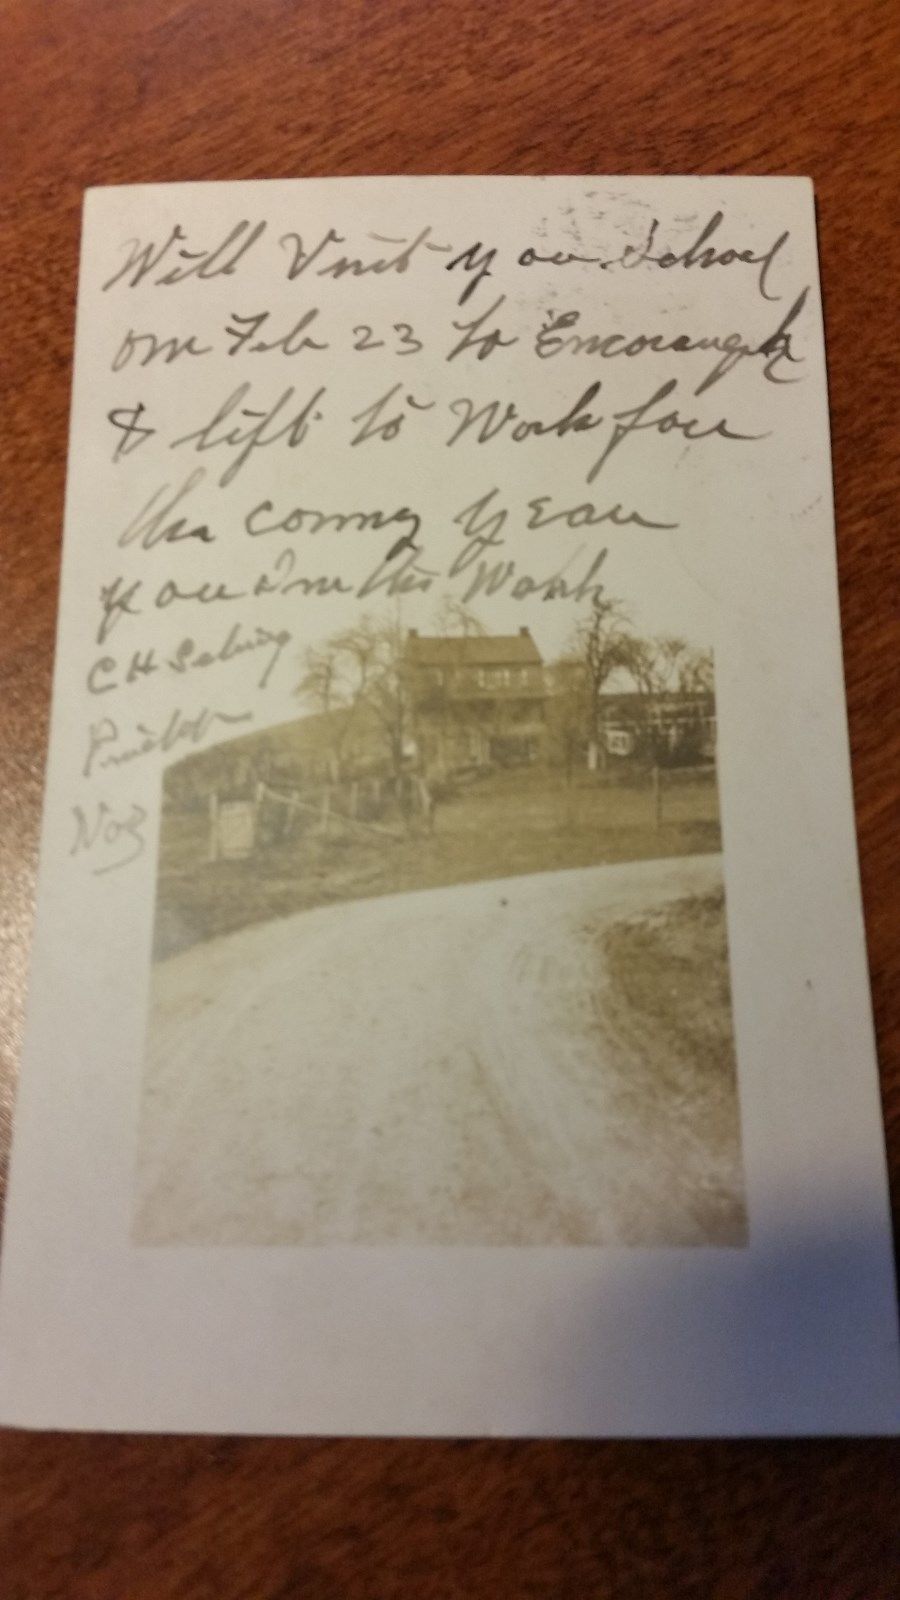 Will Visit you School
on Feb 23 to Encourage
& lift to Work for
the coming year
your in the Work
C H
No 3